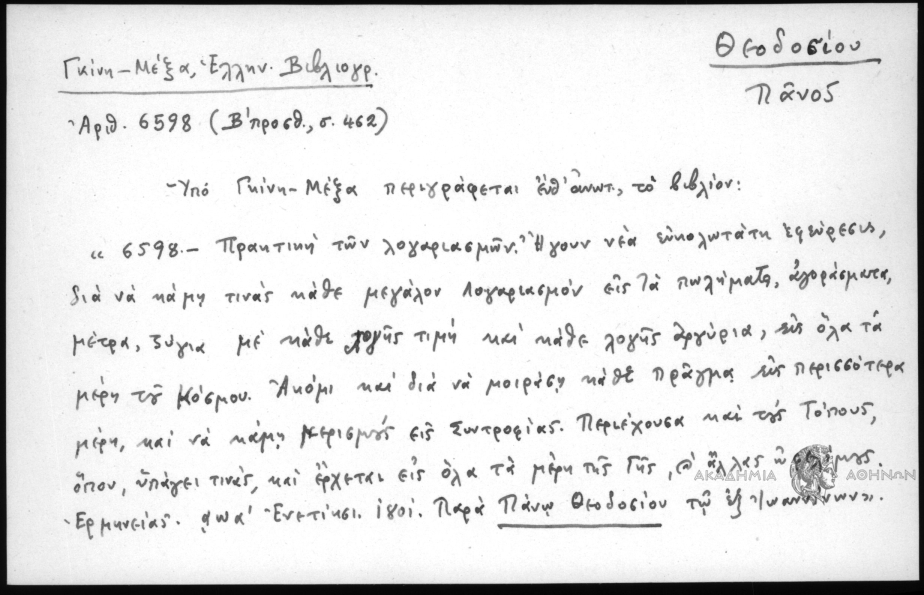 Θεοδοσίου
Πᾶνος
Γκίνη-Μέξα, Ἑλλην. Βιβλιογρ.
Ἀριθ. 6598 (Β' προσθ., σ. 462)
Ὑπό Γκίνη-Μέξα περιγράφεται ἐνθ' ἀνωτ., τὸ βιβλίον:
« 6598.- Πρακτική τῶν λογαριασμῶν. Ἤγουν νέα εὐκολωτάτη ἐφεύρεσις,
διά νὰ κάμῃ τινάς κάθε μεγάλον λογαριασμόν εἰς τὰ πωλήματα, ἀγοράσματα,
μέτρα, ζύγια μέ κάθε λογῆς τιμή καί κάθε λογῆς ἀργύρια, εἰς ὅλα τά
μέρη τοῦ Κόσμου. Ἀκόμι καί διά νὰ μοιράσῃ κάθε πρᾶγμα εἰς περισσότερα
μέρη, καί νὰ κάμῃ μερισμούς εἰς Συντροφίας. Περιέχουσα καί τούς Τόπους,
ὅπου ὑπάγει τινάς, καί ἔρχεται εἰς ὅλα τὰ μέρη τῆς Γῆς, ἄλλας
Ἑρμηνείας. ͵αωα' Ἐνετίῃσι. Παρά Πάνῳ Θεοδοσίου τῷ ἐξ Ἰωαννίνων».
ΑΚΑΔΗΜΙΑ ΑΘΗΝΩΝ